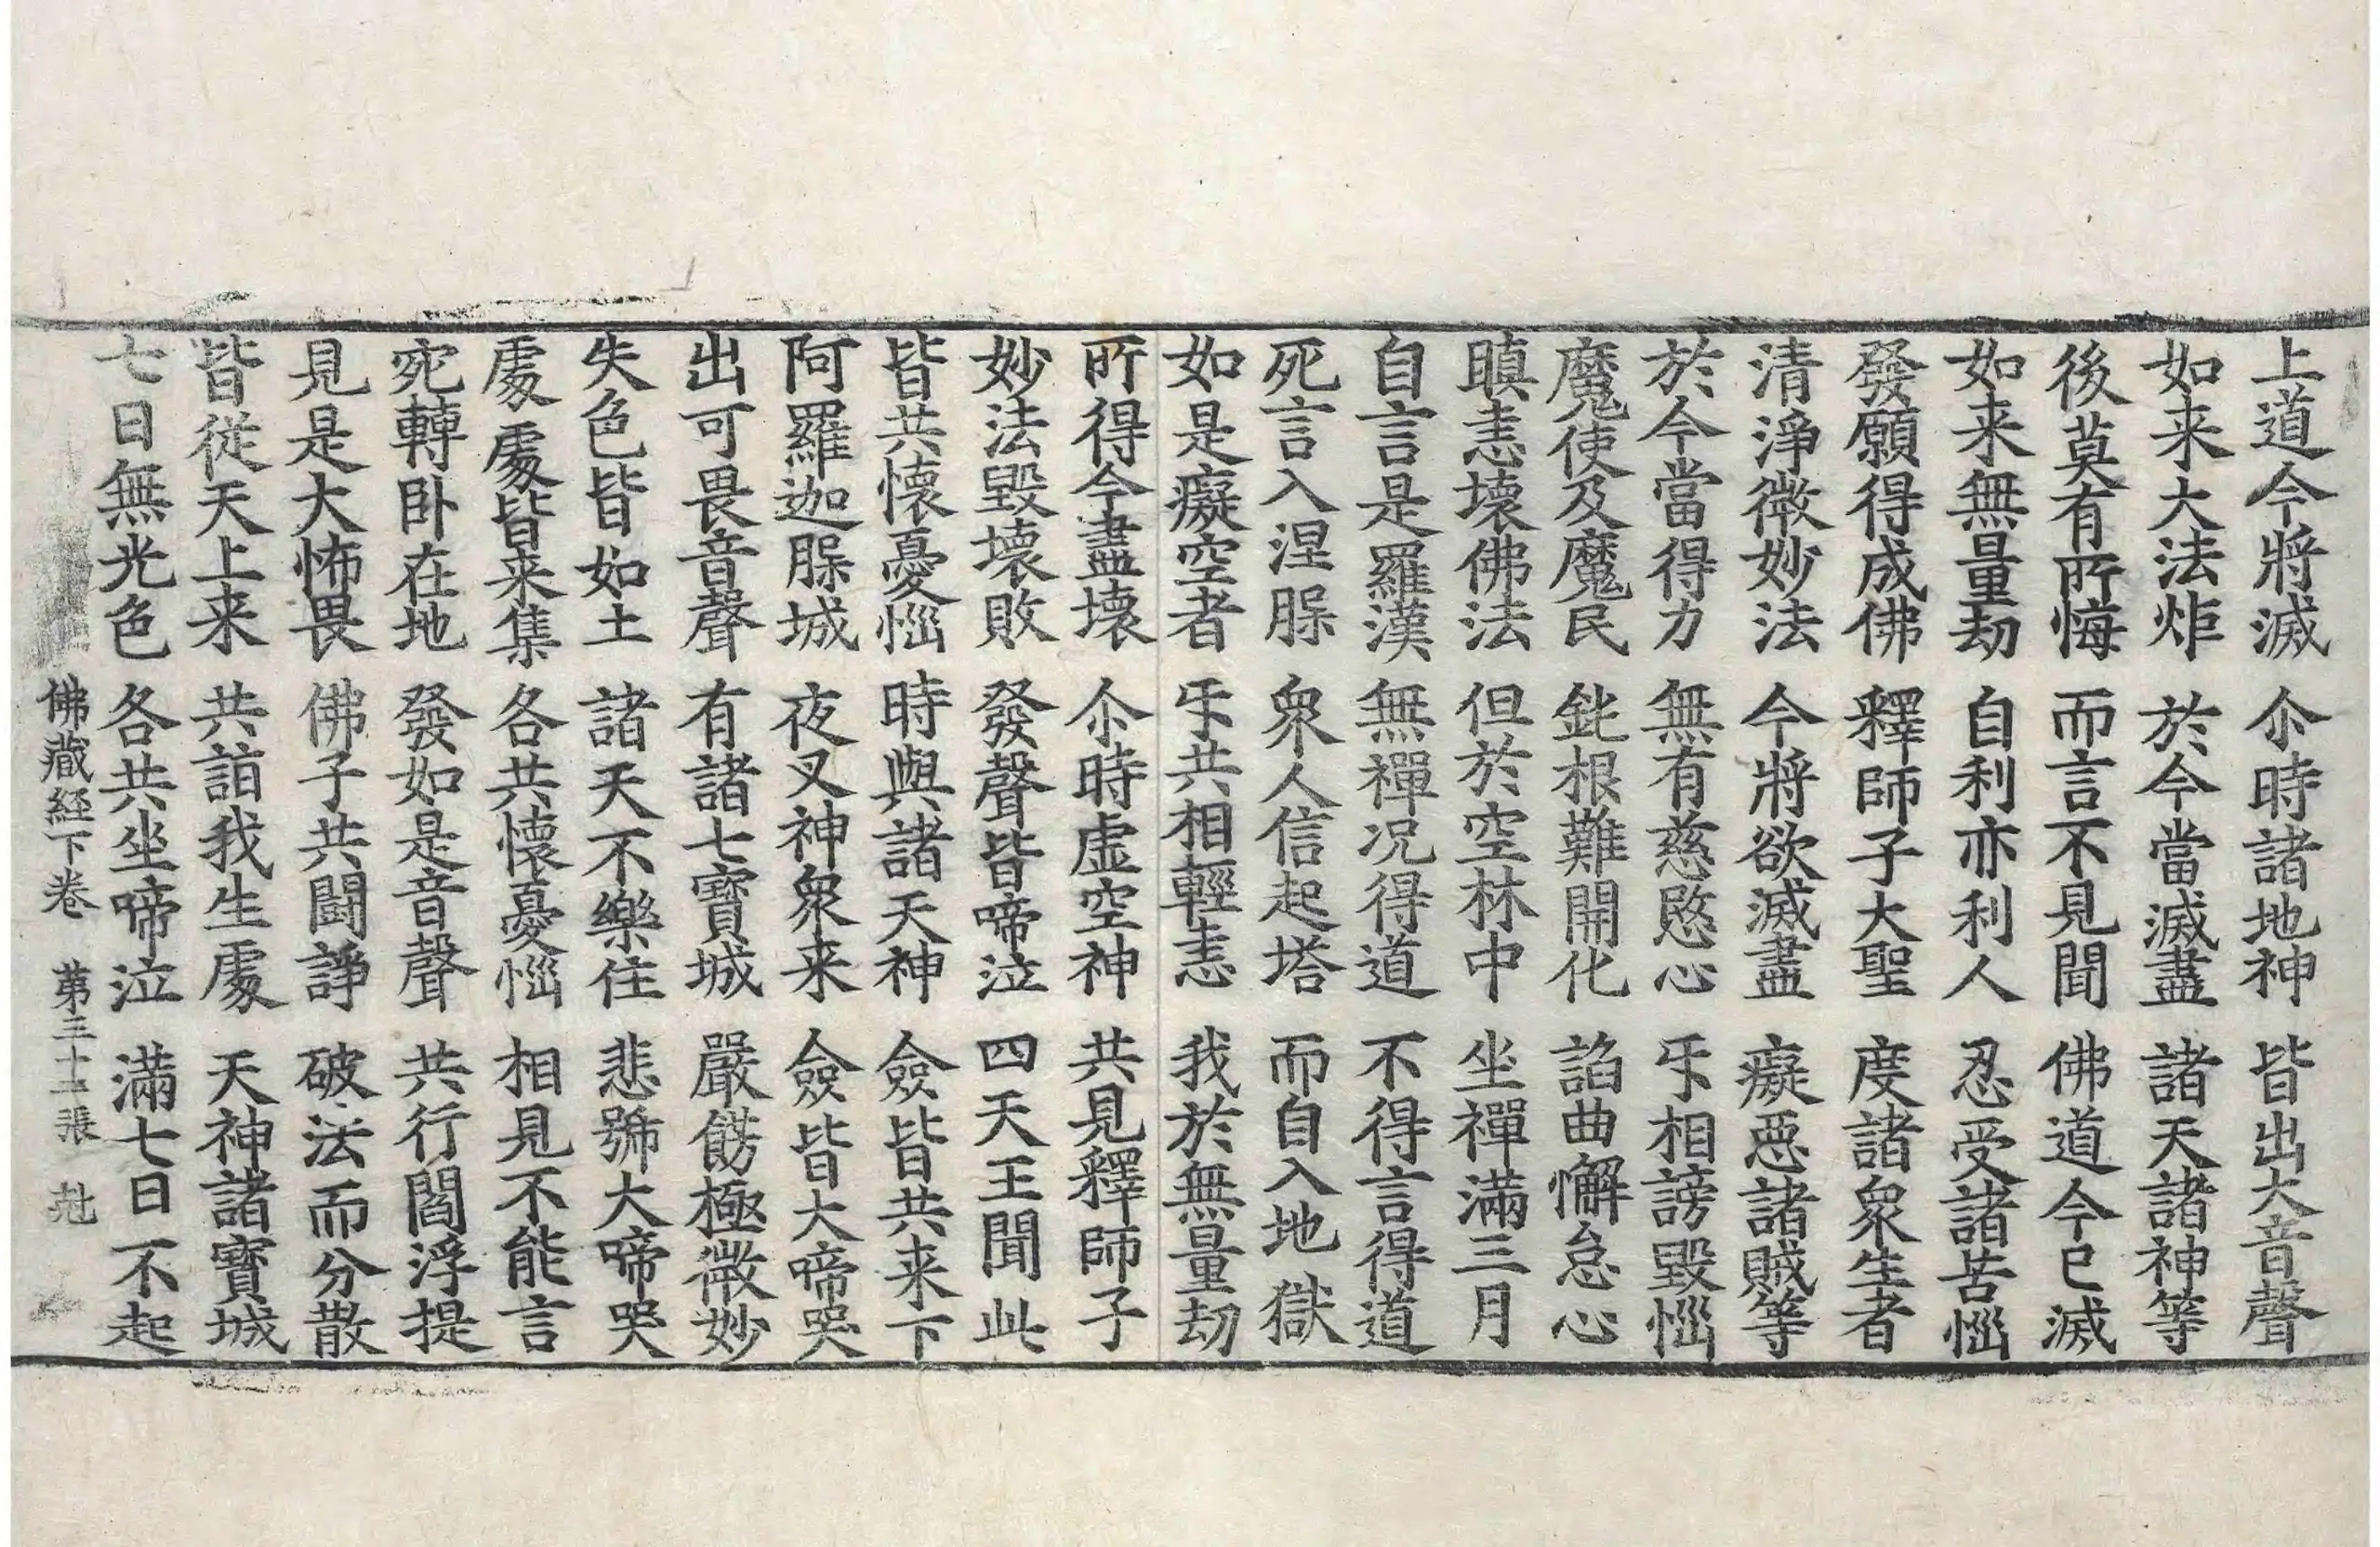 上道今將滅 尒時諸地神 皆出大音聲
如来大法炬 於今當滅盡 諸天諸神等
後莫有所悔 而言不見聞 佛道今已滅
如来無量劫 自利亦利人 忍受諸苦惱
發願得成佛 釋師子大聖 度諸衆生者
清淨微妙法 今將欲滅盡 癡惡諸賊等
於今當得力 無有慈愍心 㸦相謗毀惱
魔使及魔民 鈍根難開化 諂曲懈怠心
瞋恚壞佛法 但於空林中 坐禪滿三月
自言是羅漢 無禪况得道 不得言得道
死言入涅槃 衆人信起塔 而自入地獄
如是癡空者 㸦共相輕恚 我於無量劫
所得今盡壞 尒時虛空神 共見釋師子
妙法毀壞敗 發聲皆啼泣 四天王聞此
皆共懷憂惱 時與諸天神 僉皆共来下
阿羅迦槃城 夜叉神衆来 僉皆大啼哭
出可畏音聲 有諸七寶城 嚴餝極微妙
失色皆如土 諸天不樂住 悲號大啼哭
處處皆来集 各共懷憂惱 相見不能言
宛轉卧在地 發如是音聲 共行閻浮提
見是大怖畏 佛子共鬪諍 破法而分散
皆從天上来 共詣我生處 天神諸寶城
七日無光色 各共坐啼泣 滿七日不起
佛藏経下卷 第三十二張